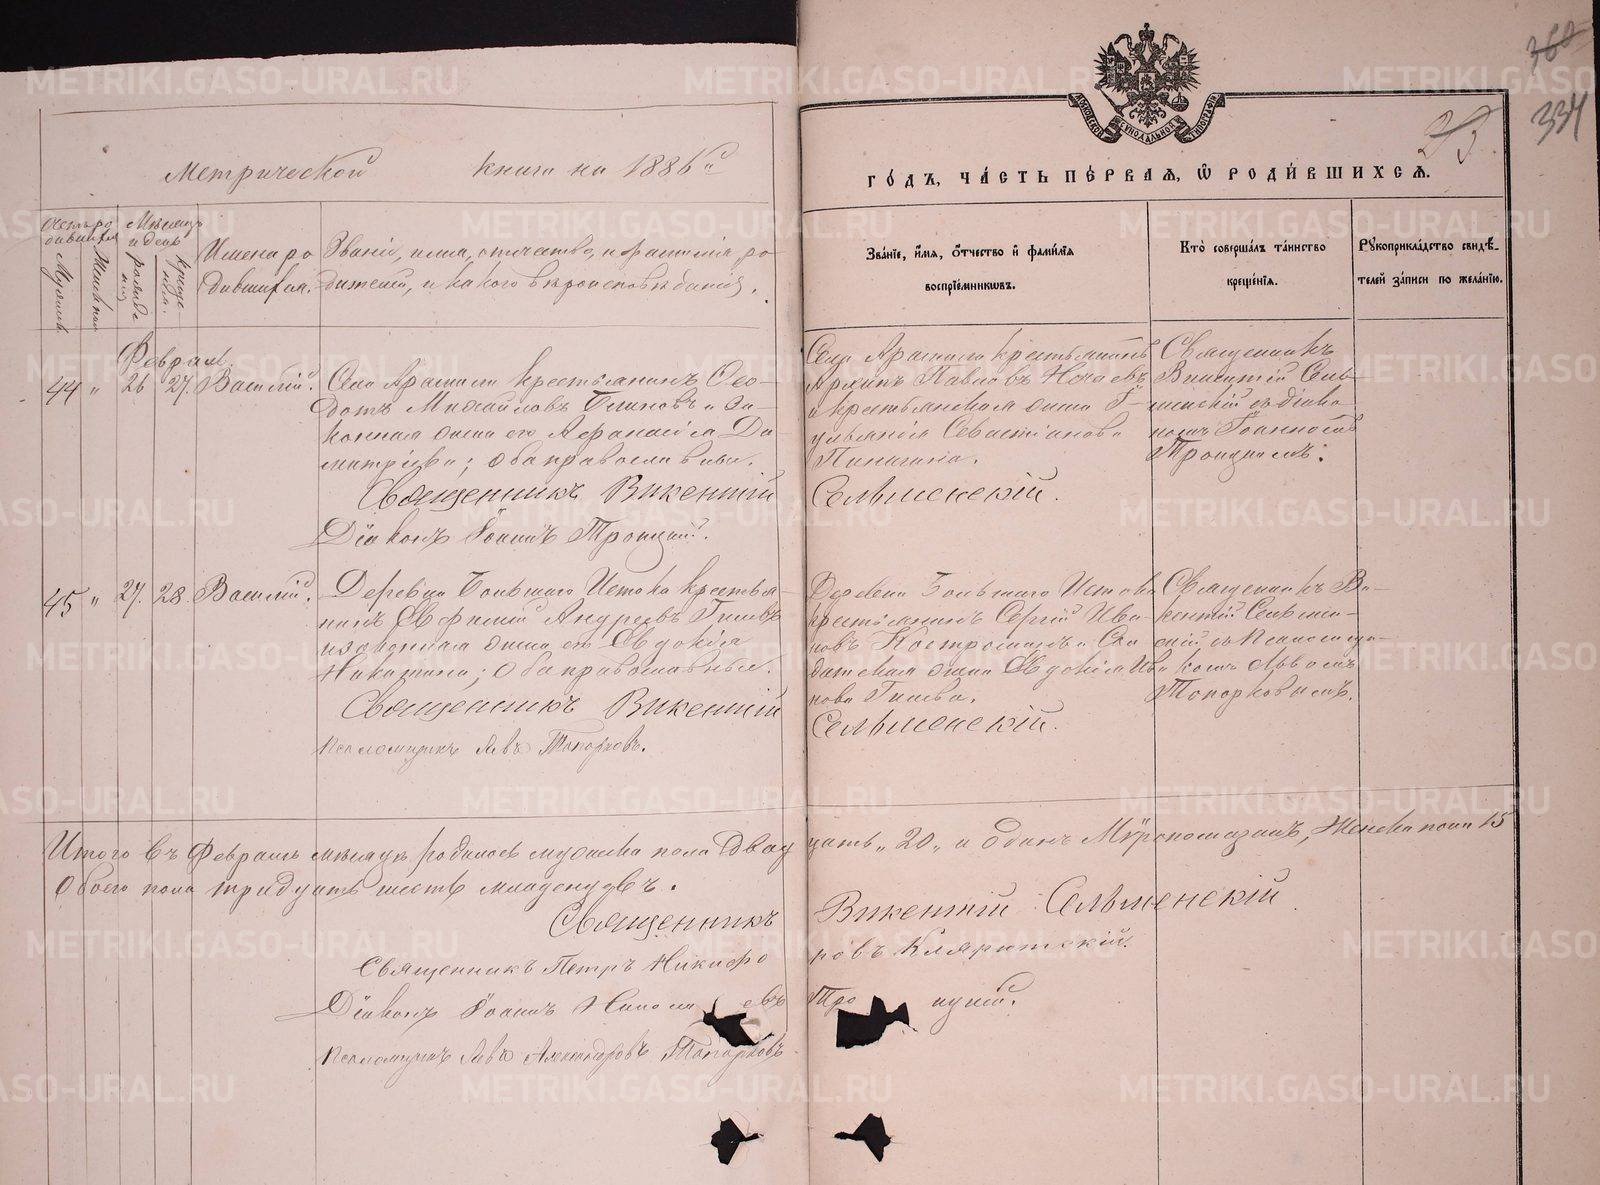 360
334
23
МОСКОВСКОЙ СѴНОДАЛЬНОЙ ТИПОГРАФІИ
Метрической книги на 1886й
го́дъ, ча́сть пе́рваѧ, ѡ҆ роди́вшихсѧ.
Счетъ родившихся
Мужеска.
Женска.
Мѣсяцъ и день
рожденія
крещенія.
Имена родившихся.
Званіе, имя, отчество, и фамилія ро
дителей, и какого вѣроисповѣданія.
Зва́нїе, и҆́мя, ѻ҆́тчество и҆ фами́лїя
воспрїе́мниковъ.
Кто̀ соверша́лъ та́инство
креще́нїя.
Рꙋкоприкла́дство свидѣ́-
телей за́писи по жела́нїю.
Февраль
44 „ 26 27. Василій.
Села Арамили крестьянинъ Ѳео-
дотъ Михайловъ Блиновъ и за-
конная жена его Аѳанасія Ди
митріева; оба православные.
Священникъ Викентій
Діаконъ Іоаннъ Троицкій.
Села Арамили крестьянинъ
Архипъ Павловъ Нечаевъ
и крестьянская жена
Севастіанова
Сельменскій.
Священникъ
Викентій Сель-
менскій съ діако
номъ Іоанномъ
Троицкимъ.
45 „ 27. 28 Василій.
Деревни Большаго Истока крестья-
нинъ Евфимій Андреевъ Гилевъ
и законная жена его Евдокія
Никитина; оба православные.
Священникъ Викентій
Псаломщикъ Левъ Топорковъ.
Деревни Большаго Истока
крестьянинъ Сергій Ива-
новъ Костроминъ и Сол
датская жена Евдокія Ива
нова Гилева.
Сельменскій.
Священникъ Ви-
кентій Сельмен-
скій, съ псаломщи-
комъ Львомъ
Топорковымъ.
Итого въ Февралѣ мѣсяцѣ родилось мужеска пола двад
цать „20„ и одинъ Мѵропомазанъ, Женска пола 15
Обоего пола тридцать шесть младенцевъ.
Священникъ Викентій Сельменскій
Священникъ Петръ Никифо
ровъ Кляритскій.
Діаконъ Іоаннъ Никола евъ Тро ицкій.
Псаломщикъ Левъ Александровъ Топорковъ
METRIKI.GASO-URAL.RU